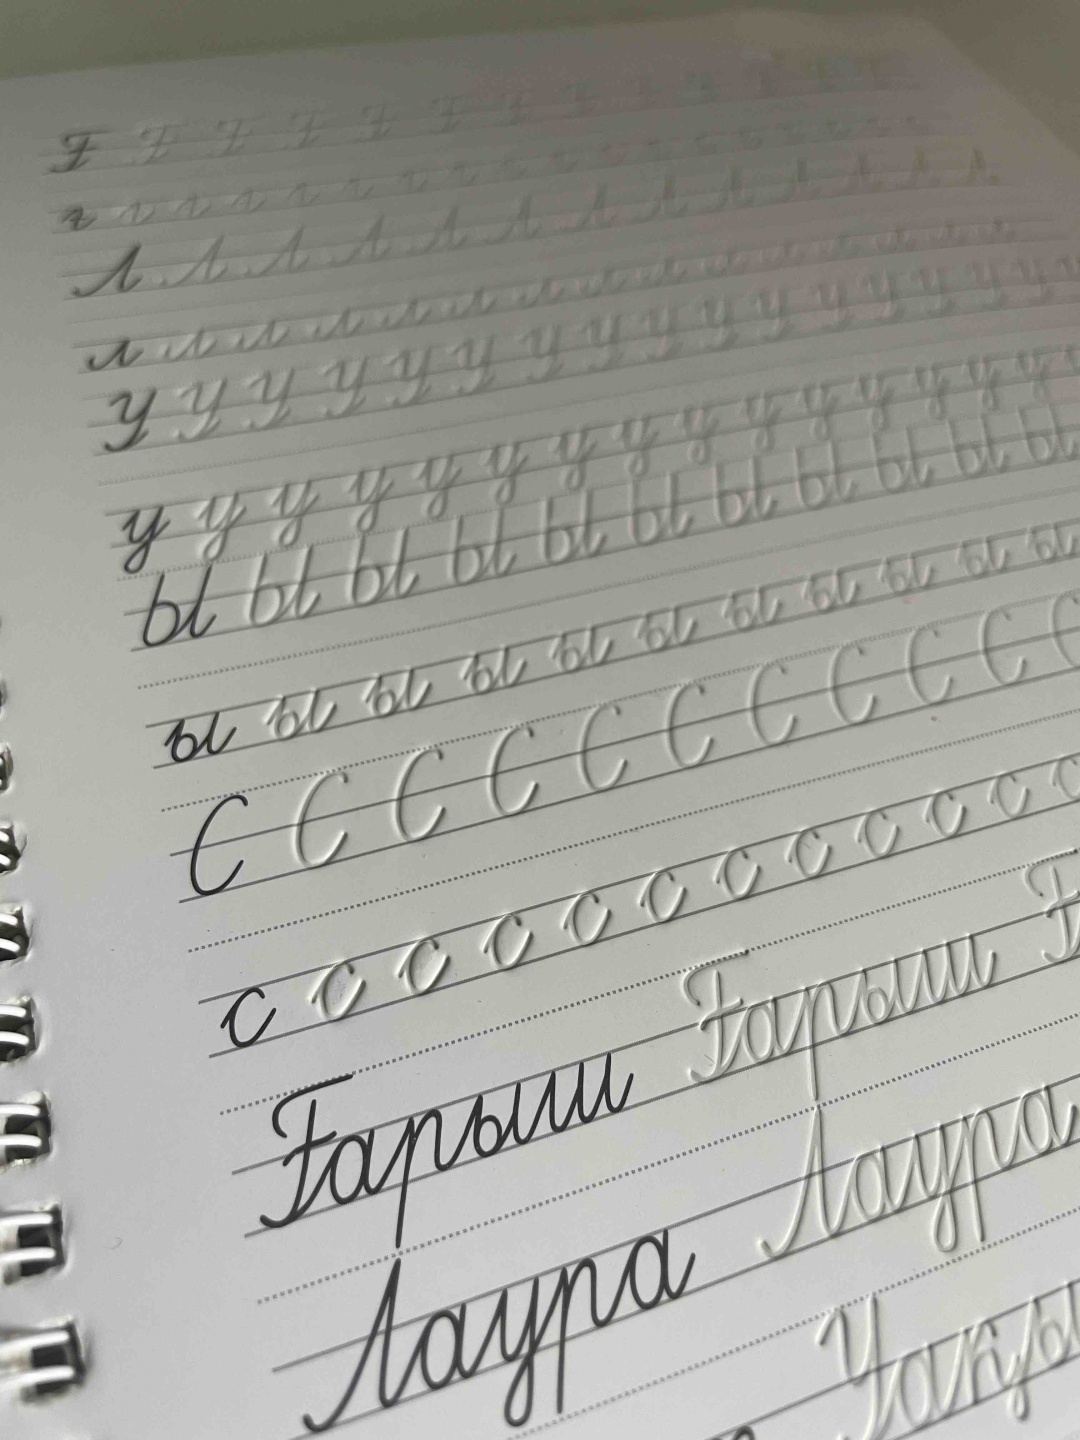 Ғ Ғ Ғ Ғ Ғ Ғ Ғ Ғ
ғ ғ ғ ғ ғ ғ ғ ғ
Л Л Л Л Л Л Л Л Л Л Л Л Л
л л л л л л л л л л л л л л л
У У У У У У У У У У У У У У У У У
у у у у у у у у у у у у у у у у
Ы Ы Ы Ы Ы Ы Ы Ы Ы Ы Ы
ы ы ы ы ы ы ы ы ы ы ы
С С С С С С С С С С С
с с с с с с с с с с с с
Ғарыш Ғарыш Ғ
Лаура Лаура
Уақы